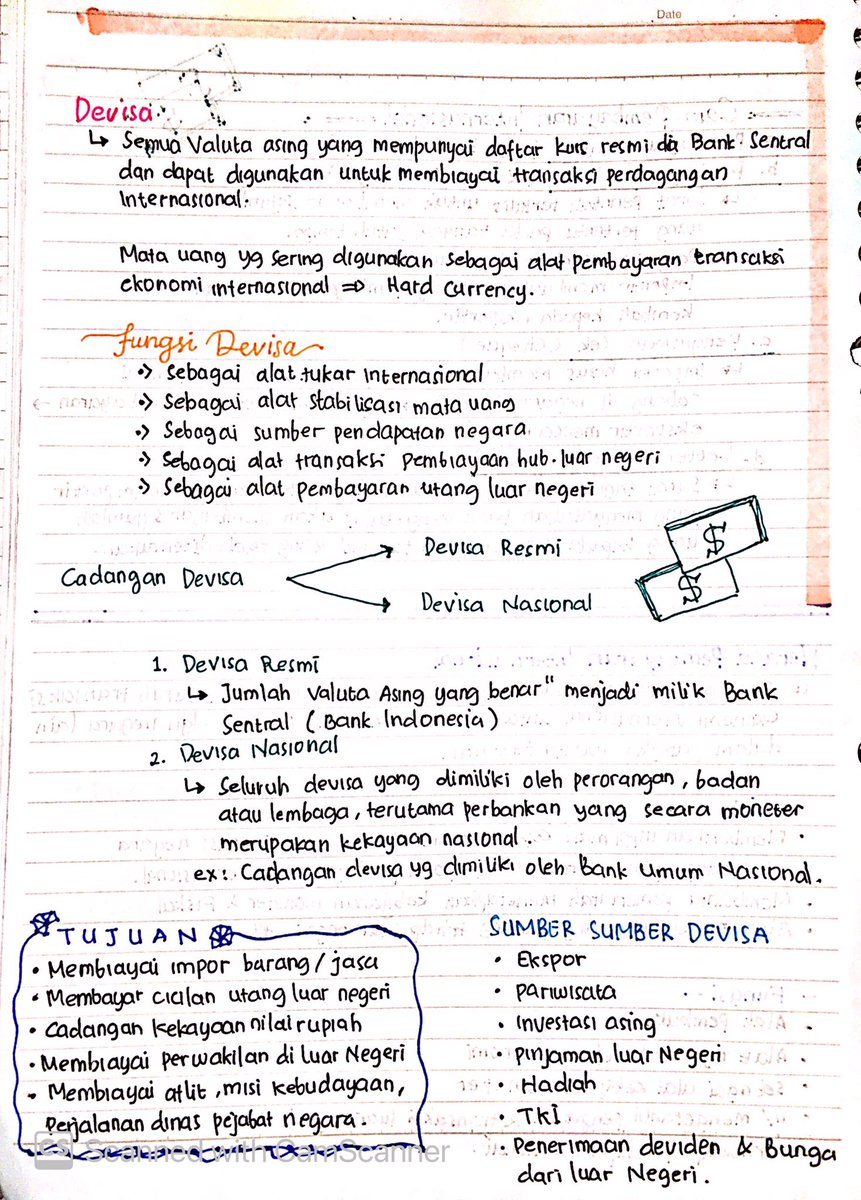 Date
Devisa
↳ Semua Valuta asing yang mempunyai daftar kurs resmi di Bank Sentral
dan dapat digunakan untuk membiayai transaksi perdagangan
Internasional.
Mata uang yg sering digunakan sebagai alat pembayaran transaksi
ekonomi internasional ⇒ Hard Currency.
Fungsi Devisa
·> Sebagai alat tukar Internasional
·> Sebagai alat stabilisasi mata uang
·> Sebagai sumber pendapatan negara
·> Sebagai alat transaksi pembiayaan hub. luar negeri
·> Sebagai alat pembayaran utang luar negeri
Cadangan Devisa
Devisa Resmi
Devisa Nasional
$
$
1. Devisa Resmi
↳ Jumlah Valuta Asing yang benar" menjadi milik Bank
Sentral (Bank Indonesia)
2. Devisa Nasional
↳ Seluruh devisa yang dimiliki oleh perorangan, badan
atau lembaga, terutama perbankan yang secara moneter
merupakan kekayaan nasional.
ex: Cadangan devisa yg dimiliki oleh Bank Umum Nasional.
TUJUAN
• Membiayai impor barang/jasa
• Membayar cicilan utang luar negeri
• Cadangan kekayaan nilai rupiah
• Membiayai perwakilan di luar Negeri
• Membiayai atlit, misi kebudayaan,
perjalanan dinas pejabat negara.
SUMBER SUMBER DEVISA
• Ekspor
• Pariwisata
• Investasi asing
• Pinjaman luar Negeri
• Hadiah
• TKI
• Penerimaan deviden & Bunga
dari luar Negeri.
CS Scanned with CamScanner